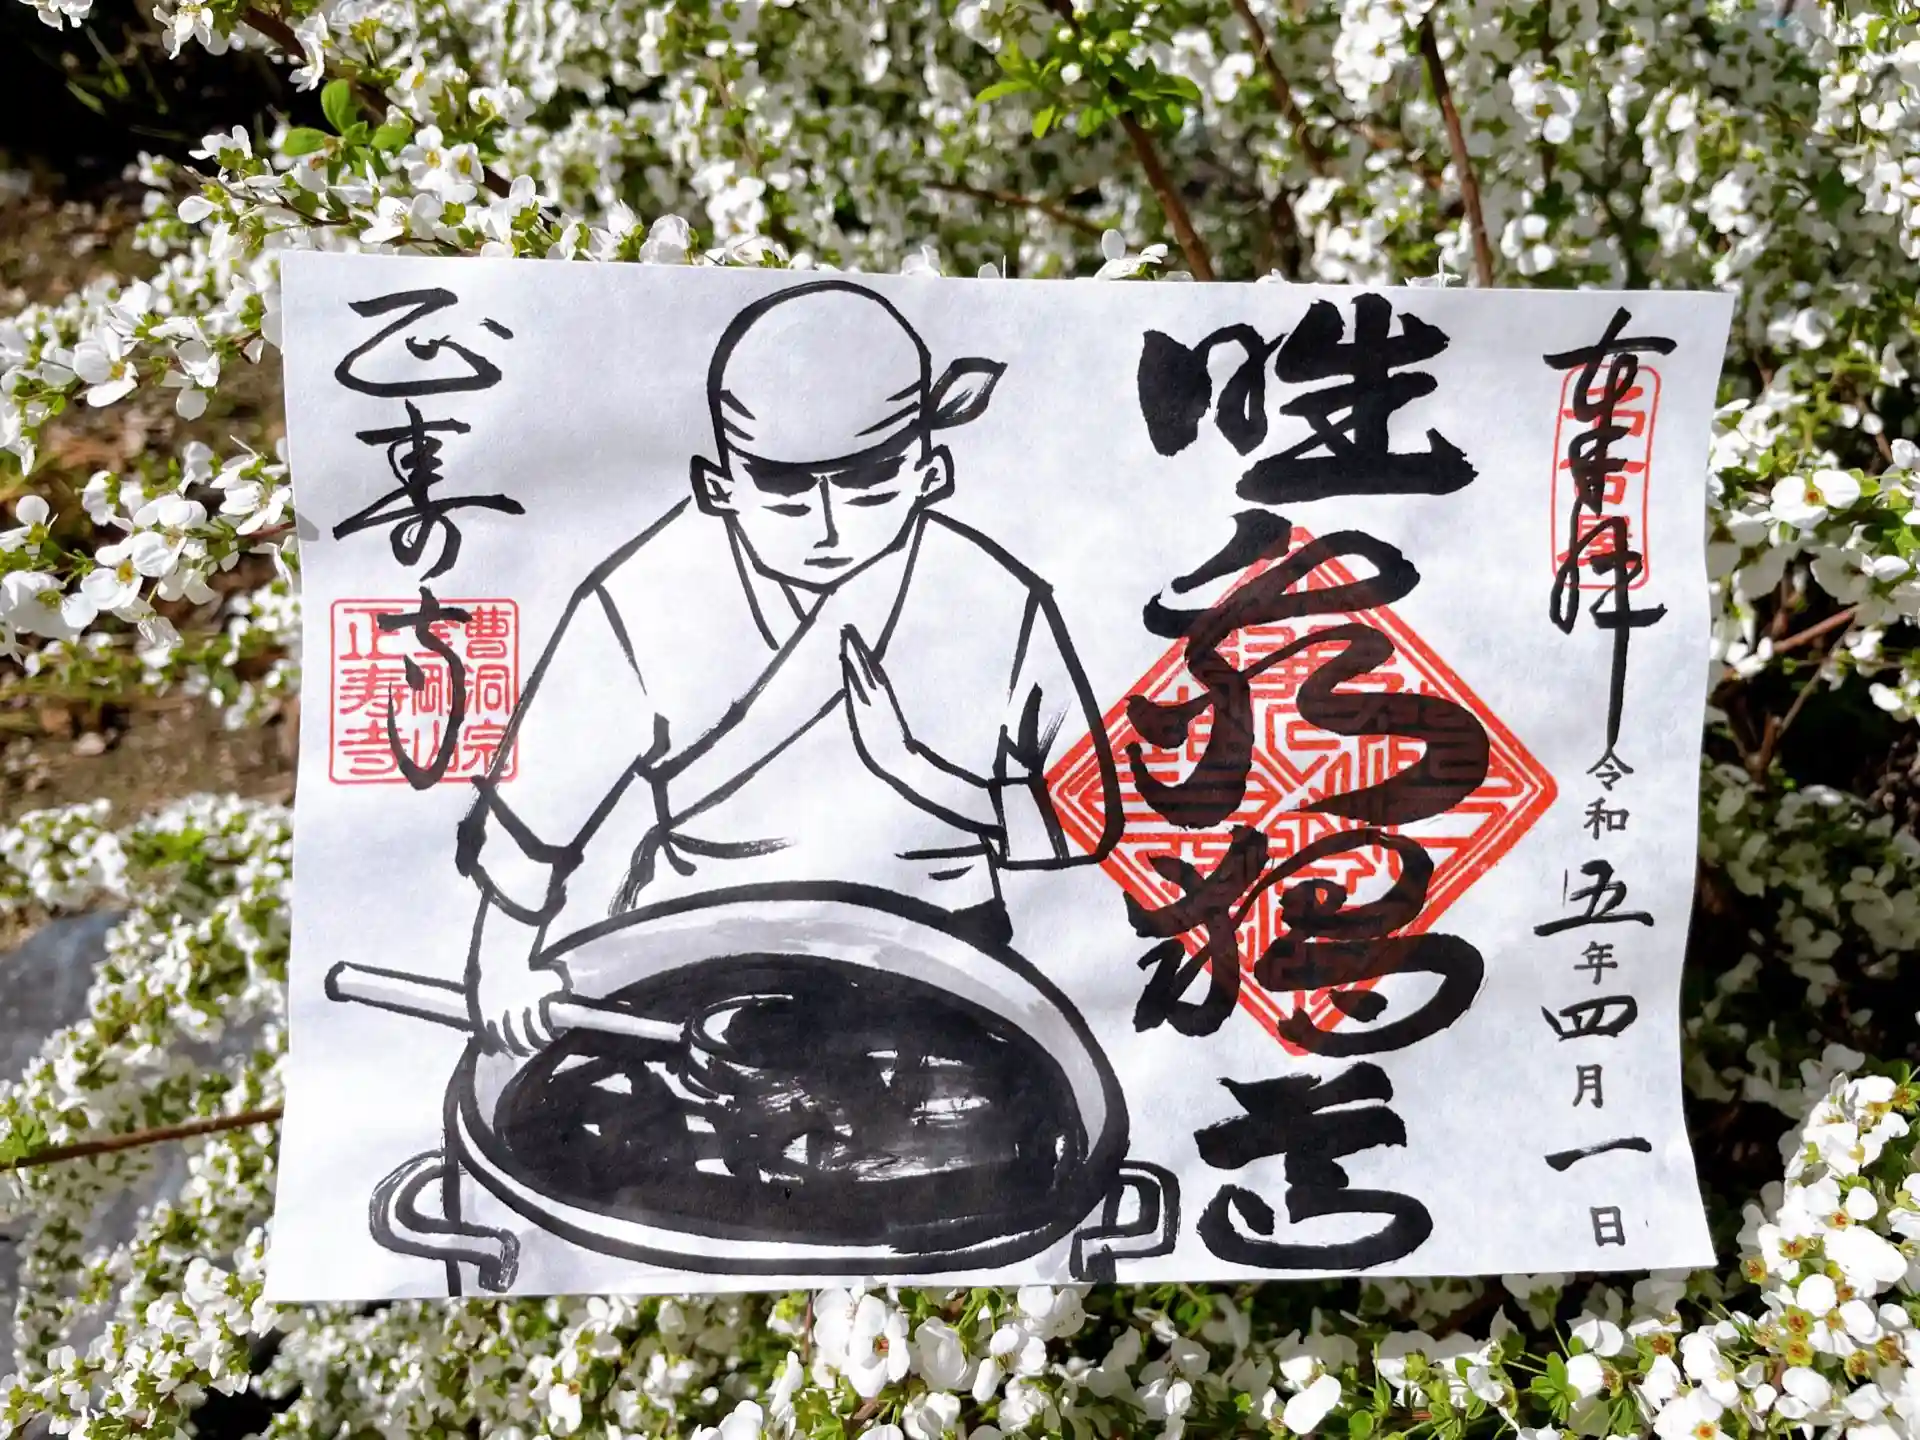 奉拝 令和五年四月一日
名古屋
唯我獨尊
正寿寺
曹洞宗
金剛山
正寿寺